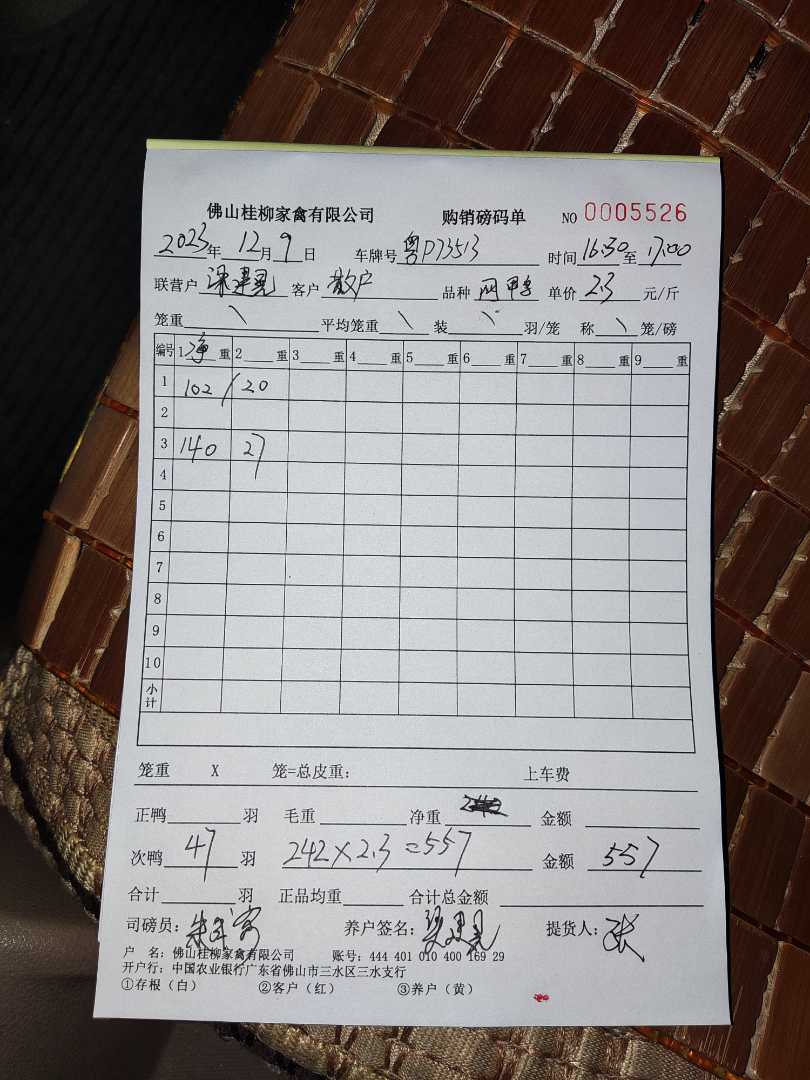 佛山桂柳家禽有限公司 购销磅码单 NO 0005526
2023年 12月 9日 车牌号 粤P73513 时间 16:30 至 17:00
联营户 客户 散户 品种 单价 2.3 元/斤
笼重 \ 平均笼重 \ 装 \ 羽/笼 称 \ 笼/磅
编号 1 净 重 2 重 3 重 4 重 5 重 6 重 7 重 8 重 9 重
1 102 / 20
2
3 140 27
4
5
6
7
8
9
10
小计
笼重 X 笼=总皮重: 上车费
正鸭 羽 毛重 净重 金额
次鸭 47 羽 242×2.3=557 金额 557
合计 羽 正品均重 合计总金额
司磅员: 养户签名: 提货人: 张
户 名: 佛山桂柳家禽有限公司 账号: 444 401 010 400 169 29
开户行: 中国农业银行广东省佛山市三水区三水支行
①存根(白) ②客户(红) ③养户(黄)